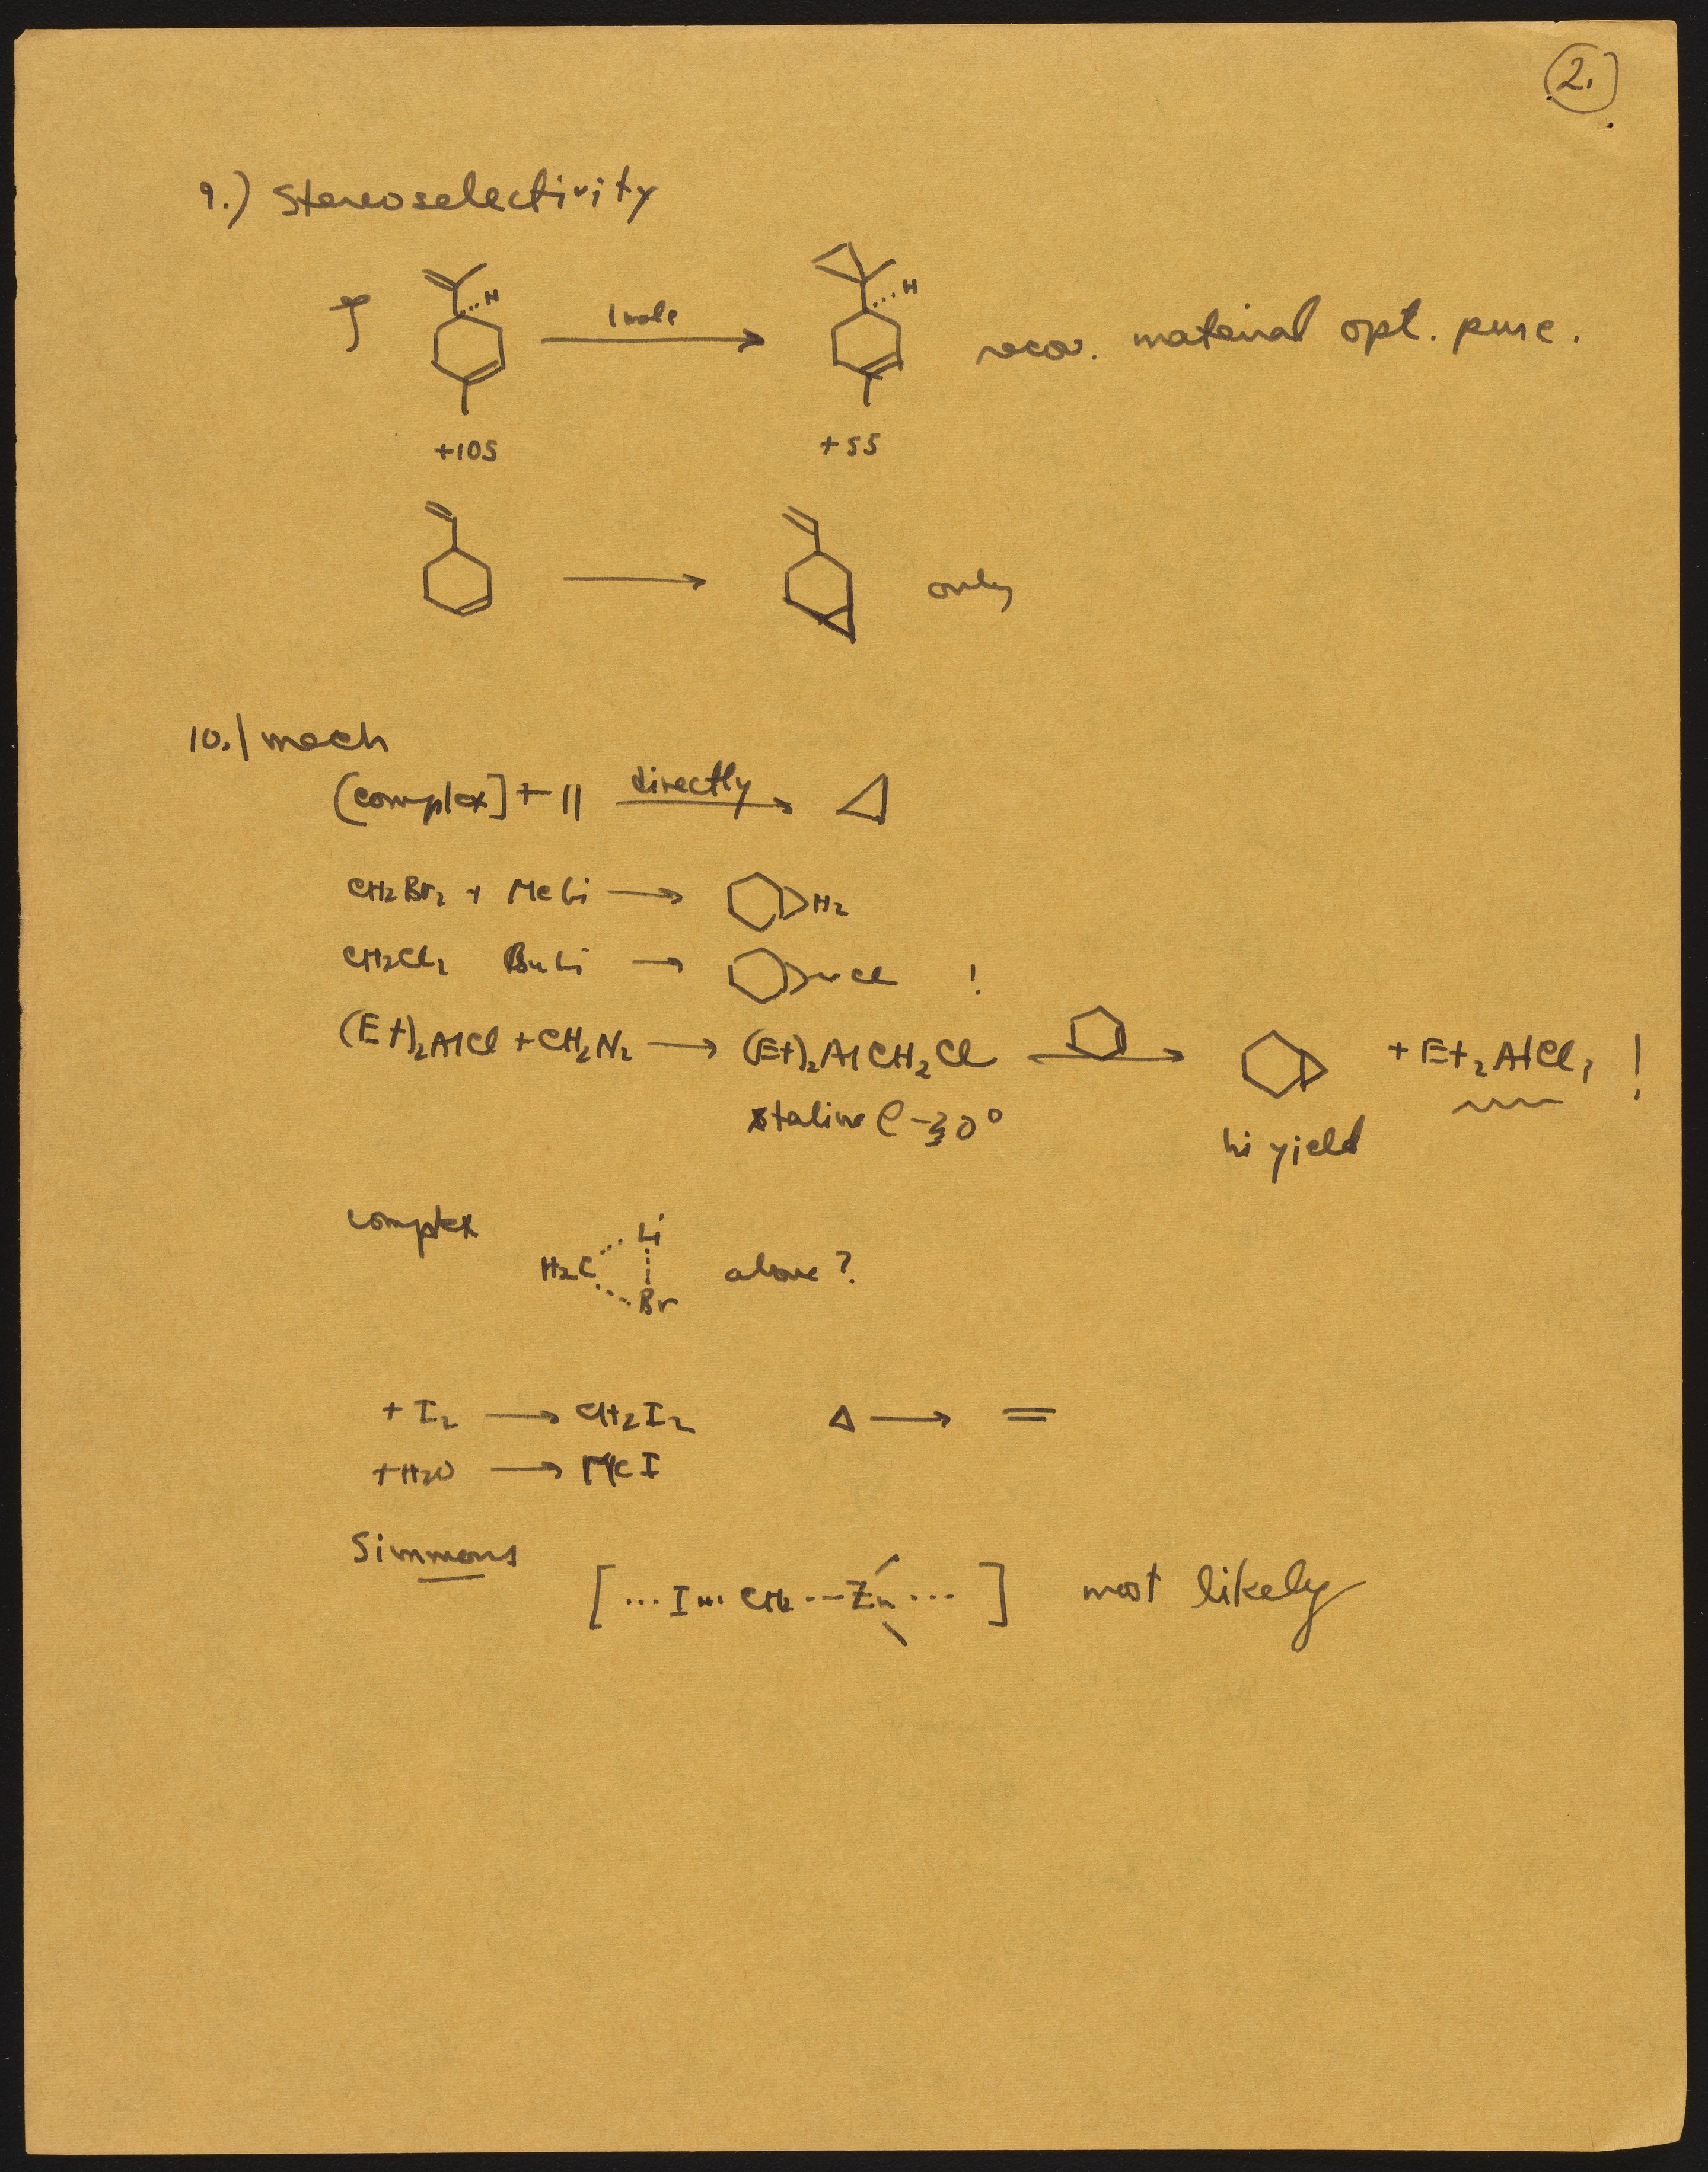 2.
9.) Stereoselectivity
H 1 mole H recov. material opt. pure.
+105 +55
only
10.) mech
[complex] + || directly
CH2Br2 + MeLi → H2
CH2Cl2 BuLi → Cl !
(Et)2AlCl + CH2N2 → (Et)2AlCH2Cl → + Et2AlCl, !
xtaline @ -30°
hi yield
complex
Li
H2C above?
Br
+ I2 → CH2I2 Δ → =
+ H2O → MeI
Simmons
[... I ... CH2 --- Zn ... ] most likely